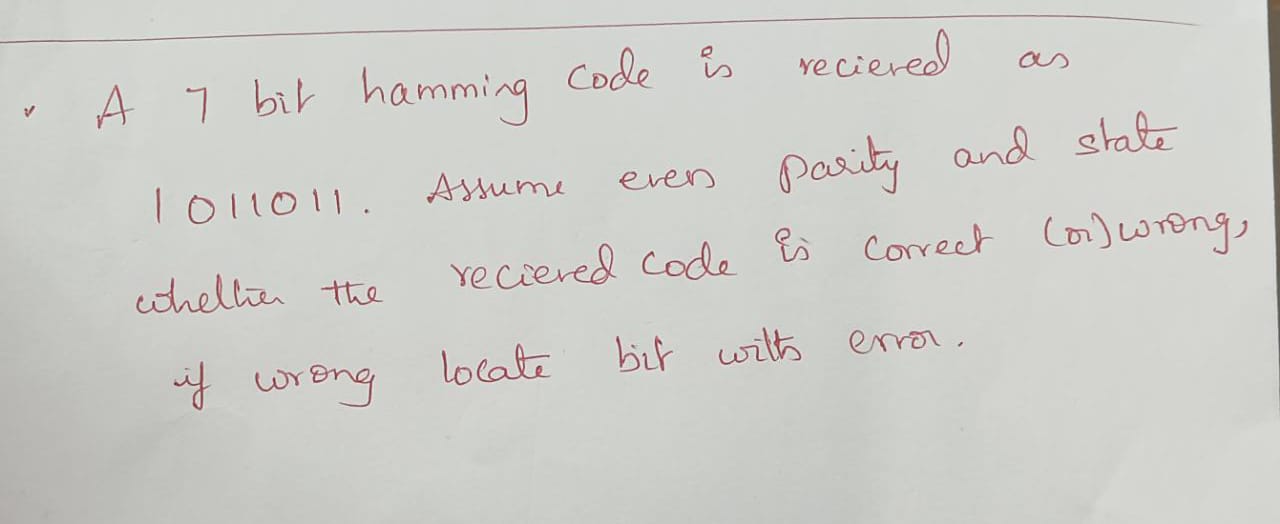 A 7 bit hamming code is recieved as
1011011. Assume even parity and state
whether the recieved code is correct (or) wrong,
if wrong locate bit with error.